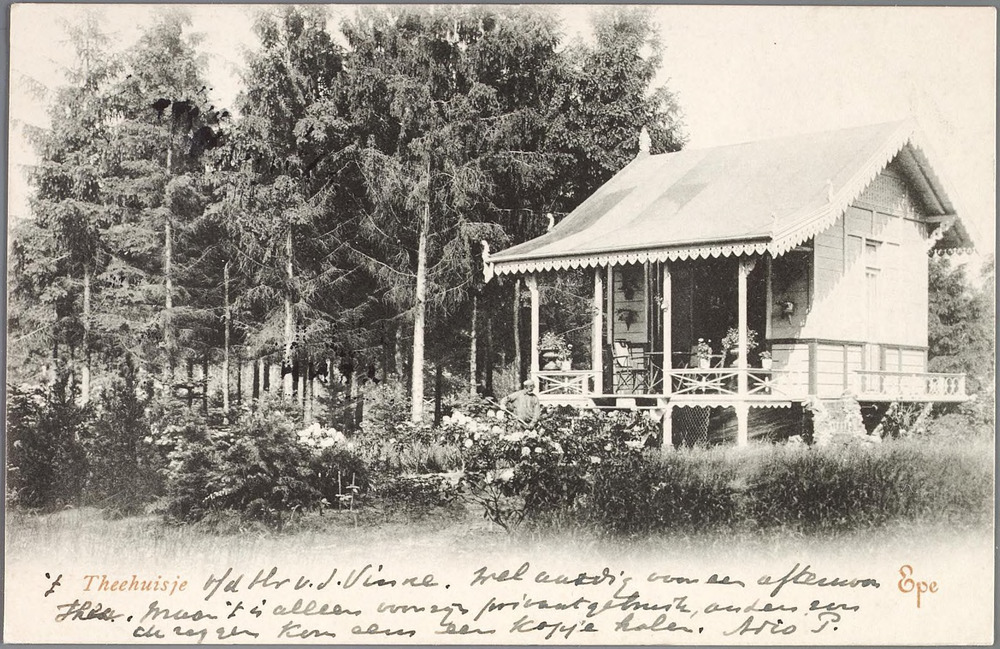 't Theehuisje v/d Hr v. d. Vinne. Wel aardig voor een afternoon Epe
Thea. Maar 't is alleen voor zijn privaat gebruik, anders zou
ik zeggen kom eens een kopje halen. Adio P.